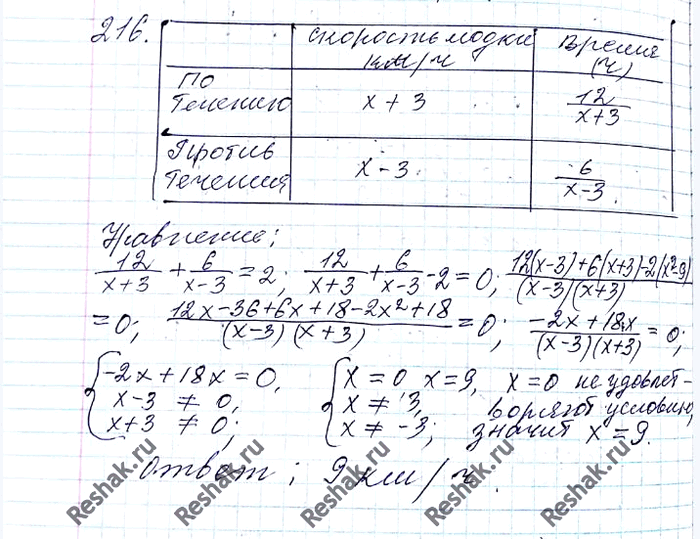 216.
скорость лодки км/ч
Время (ч)
По течению
x + 3
12/(x+3)
Против течения
x - 3
6/(x-3)
Уравнение;
12/(x+3) + 6/(x-3) = 2; 12/(x+3) + 6/(x-3) - 2 = 0; (12(x-3)+6(x+3)-2(x²-9))/((x-3)(x+3))
= 0; (12x-36+6x+18-2x²+18)/((x-3)(x+3)) = 0; (-2x+18x)/((x-3)(x+3)) = 0;
{ -2x+18x = 0, { x = 0 x = 9, x = 0 не удовлет-
x-3 ≠ 0, x ≠ 3, воряют условию,
x+3 ≠ 0; x ≠ -3; значит x = 9.
Ответ; 9 км/ч.
Reshak.ru
Reshak.ru
Reshak.ru
Reshak.ru
Reshak.ru